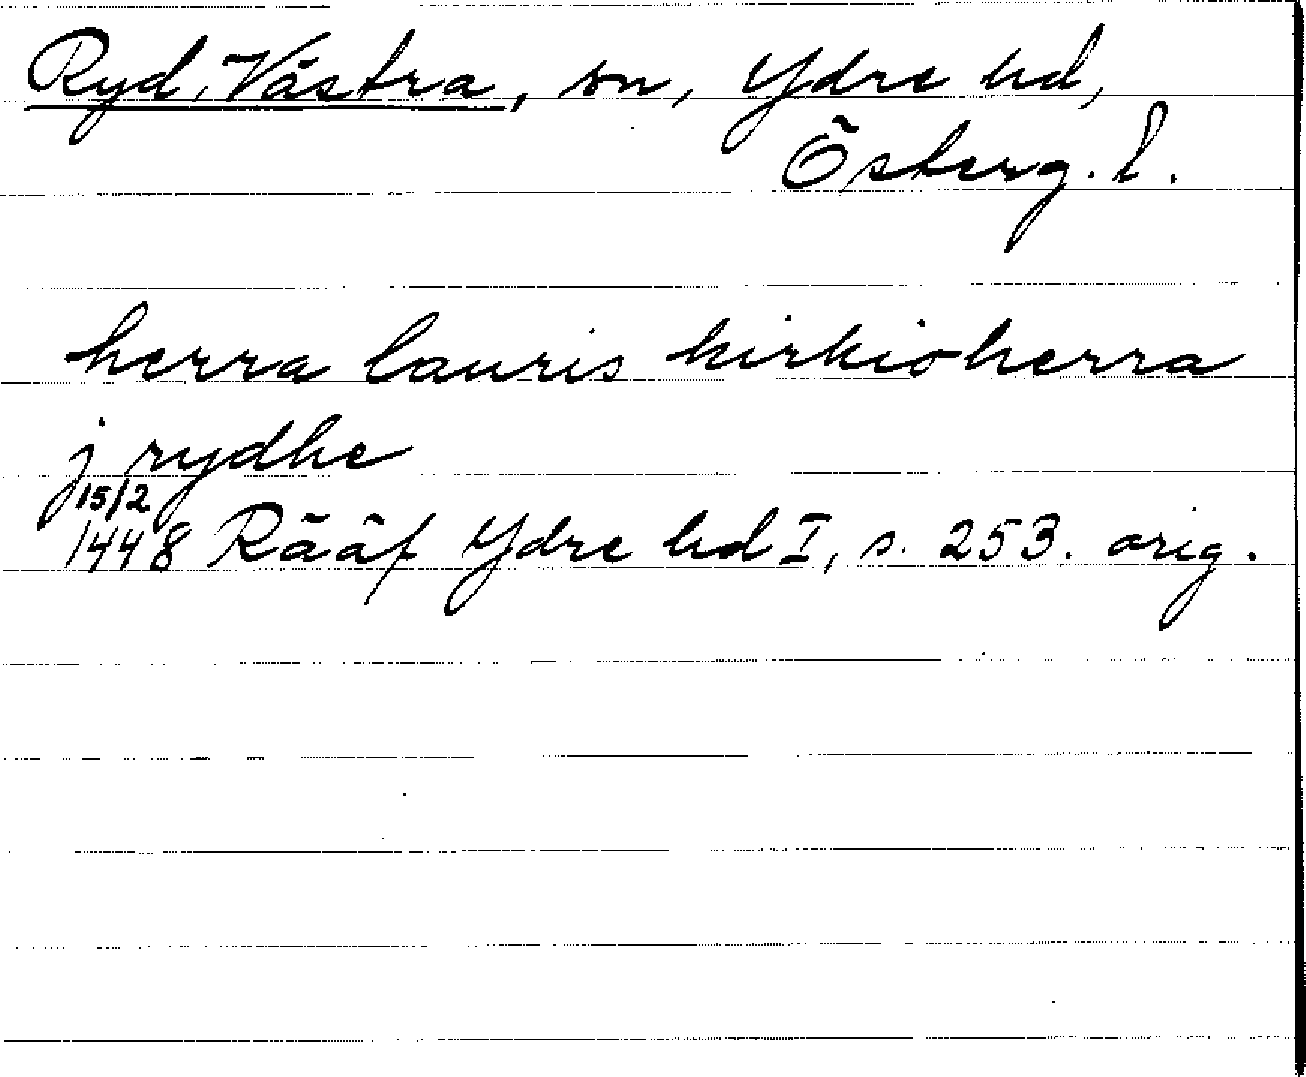 Ryd, Västra, sn, Ydre hd,
Österg. l.
herra lauris kirkioherra
j rydhe
15/2
1448 Rääf Ydre hd I, s. 253. orig.